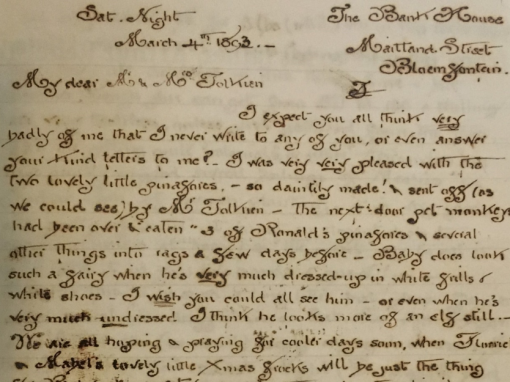 Sat. Night The Bank House
March 4th 1893. – Maitland Street
Bloemfontein.
My dear Mr & Mrs Tolkien
I expect you all think very
badly of me that I never write to any of you, or even answer
your kind letters to me? – I was very very pleased with the
two lovely little pinafores, – so daintily made! & sent off (as
we could see) by Mr Tolkien – The next-door pet monkeys
had been over & eaten 3 of Ronald's pinafores & several
other things into rags a few days before – Baby does look
such a fairy when he's very much dressed-up in white frills &
white shoes – I wish you could all see him – or even when he's
very much undressed I think he looks more of an elf still. –
We are all hoping & praying for cooler days soon, when Florrie
& Mabel's lovely little Xmas frocks will be just the thing